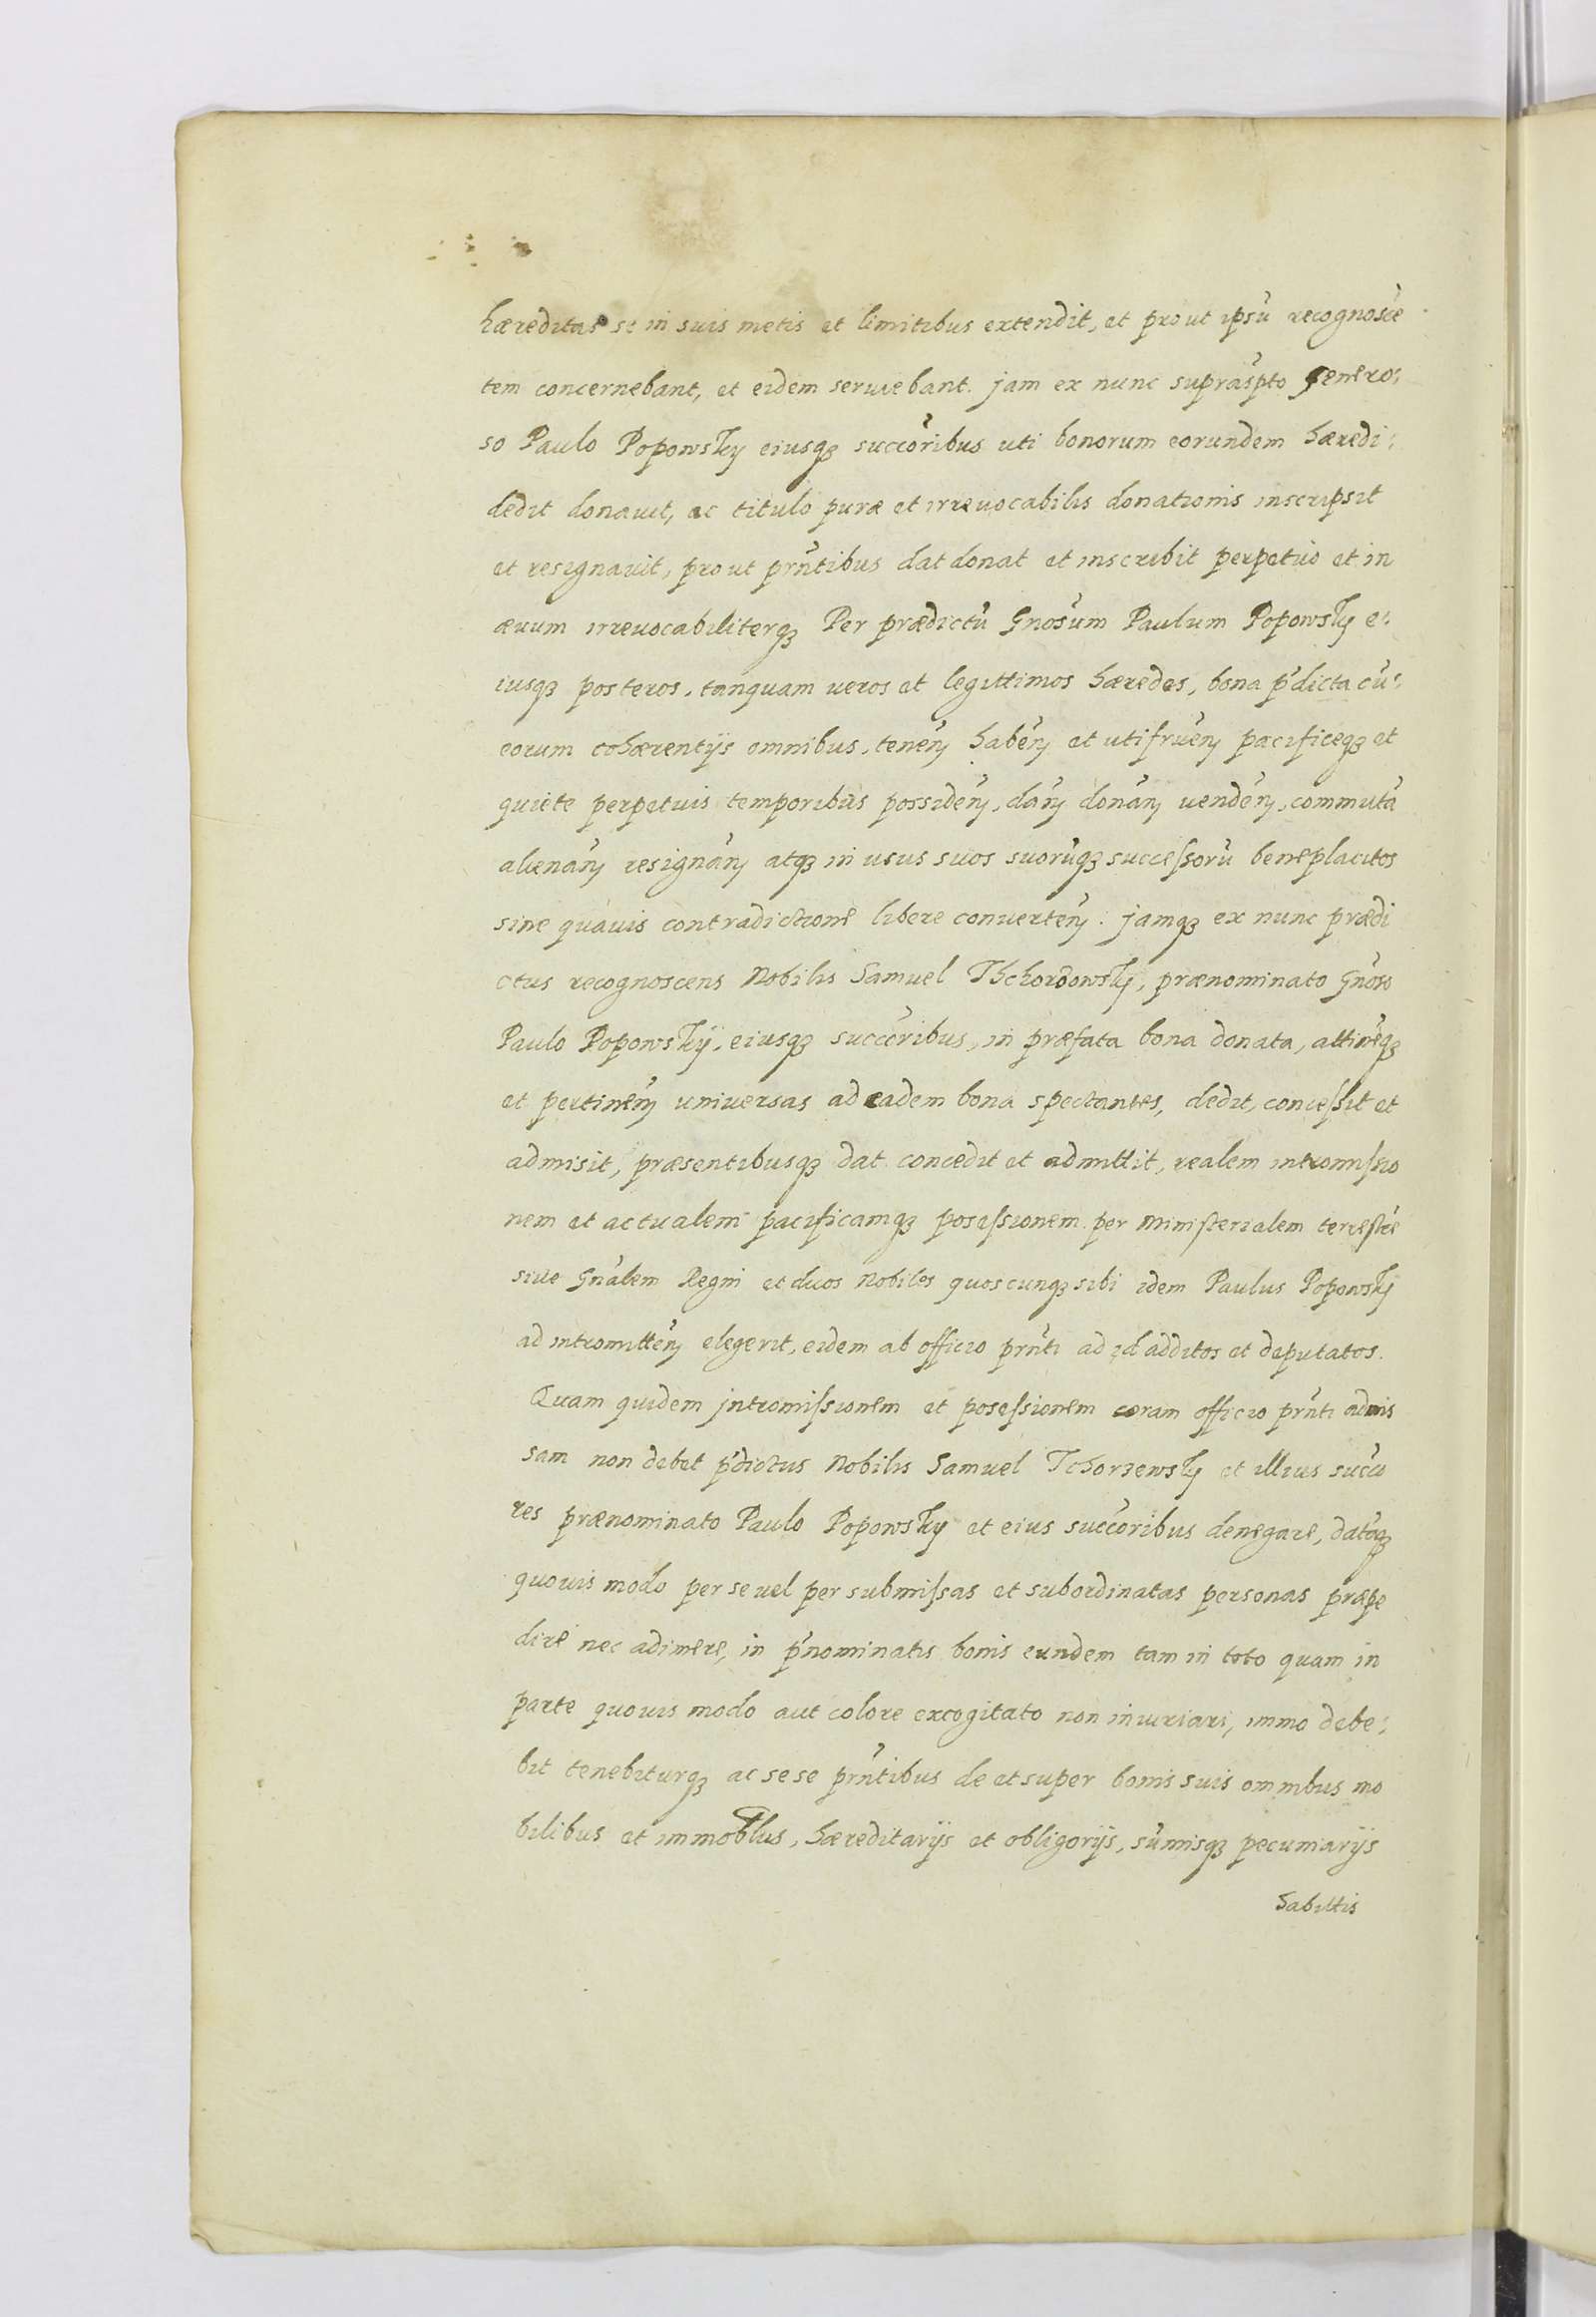 hæreditas se in suis metis et limitibus extendit, et prout ipsũ recognoscẽ
tem concernebant, et eidem serviebant. jam ex nunc suprãspto genero:
so Paulo Popowsky eiusqꝫ succõribus uti bonorum eorundem hæredi:
dedit donavit, ac titulo puræ et irrevocabilis donationis inscripsit
et resignavit, prout prñtibus dat donat et inscribit perpetuo et in
ævum irrevocabiliterqꝫ Per prædictũ Gnõsum Paulum Popowsky e:
iusqꝫ posteros, tanquam veros et legittimos hæredes, bona p̃dicta cũ:
eorum cohærentijs omnibus, teneñ habeñ et utifrueñ pacificeqꝫ et
quiete perpetuis temporibus possideñ, dañ donañ vendeñ, commutã
alienañ resignañ atqꝫ in usus suos suorũqꝫ successorũ beneplacitos
sine quavis contradictione libere converteñ: jamqꝫ ex nunc prædi
ctus recognoscens Nobilis Samuel Thchordowsky, prænominato Gnõso
Paulo Popowskÿ, eiusqꝫ succõribus, in præfata bona donata, attinẽqꝫ
et pertineñ universas ad eadem bona spectantes, dedit, concessit et
admisit, præsentibusqꝫ dat concedit et admittit, realem intromissio
nem et actualem pacificamqꝫ posessionem per Ministerialem terrestrẽ
sive Gnãlem Regni et duos Nobiles quoscunqꝫ sibi idem Paulus Popowsky
ad intromitteñ elegerit, eidem ab officio prñti ad id additos et deputatos.
Quam quidem jntromissionem et posessionem coram officio prñti admis
sam non debet p̃dictus Nobilis Samuel Tchorzewsky et illius succo
res prænominato Paulo Popowsky et eius succõribus denegare, datãqꝫ
quovis modo per se vel per submissas et subordinatas personas præpe
dire nec adimere, in p̃nominatis bonis eundem tam in toto quam in
parte quovis modo aut colore excogitato non iniuriari, immo debe:
bit tenebiturqꝫ ac sese prñtibus de et super bonis suis omnibus mo
bilibus et immobłus, hæreditarijs et obligorijs, sũmisqꝫ pecuniarijs
habittis